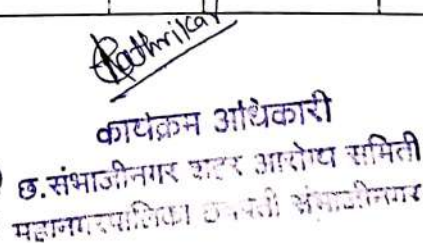 Rathrikar
कार्यक्रम अधिकारी
छ.संभाजीनगर शहर आरोग्य समिती
महानगरपालिका छत्रपती संभाजीनगर